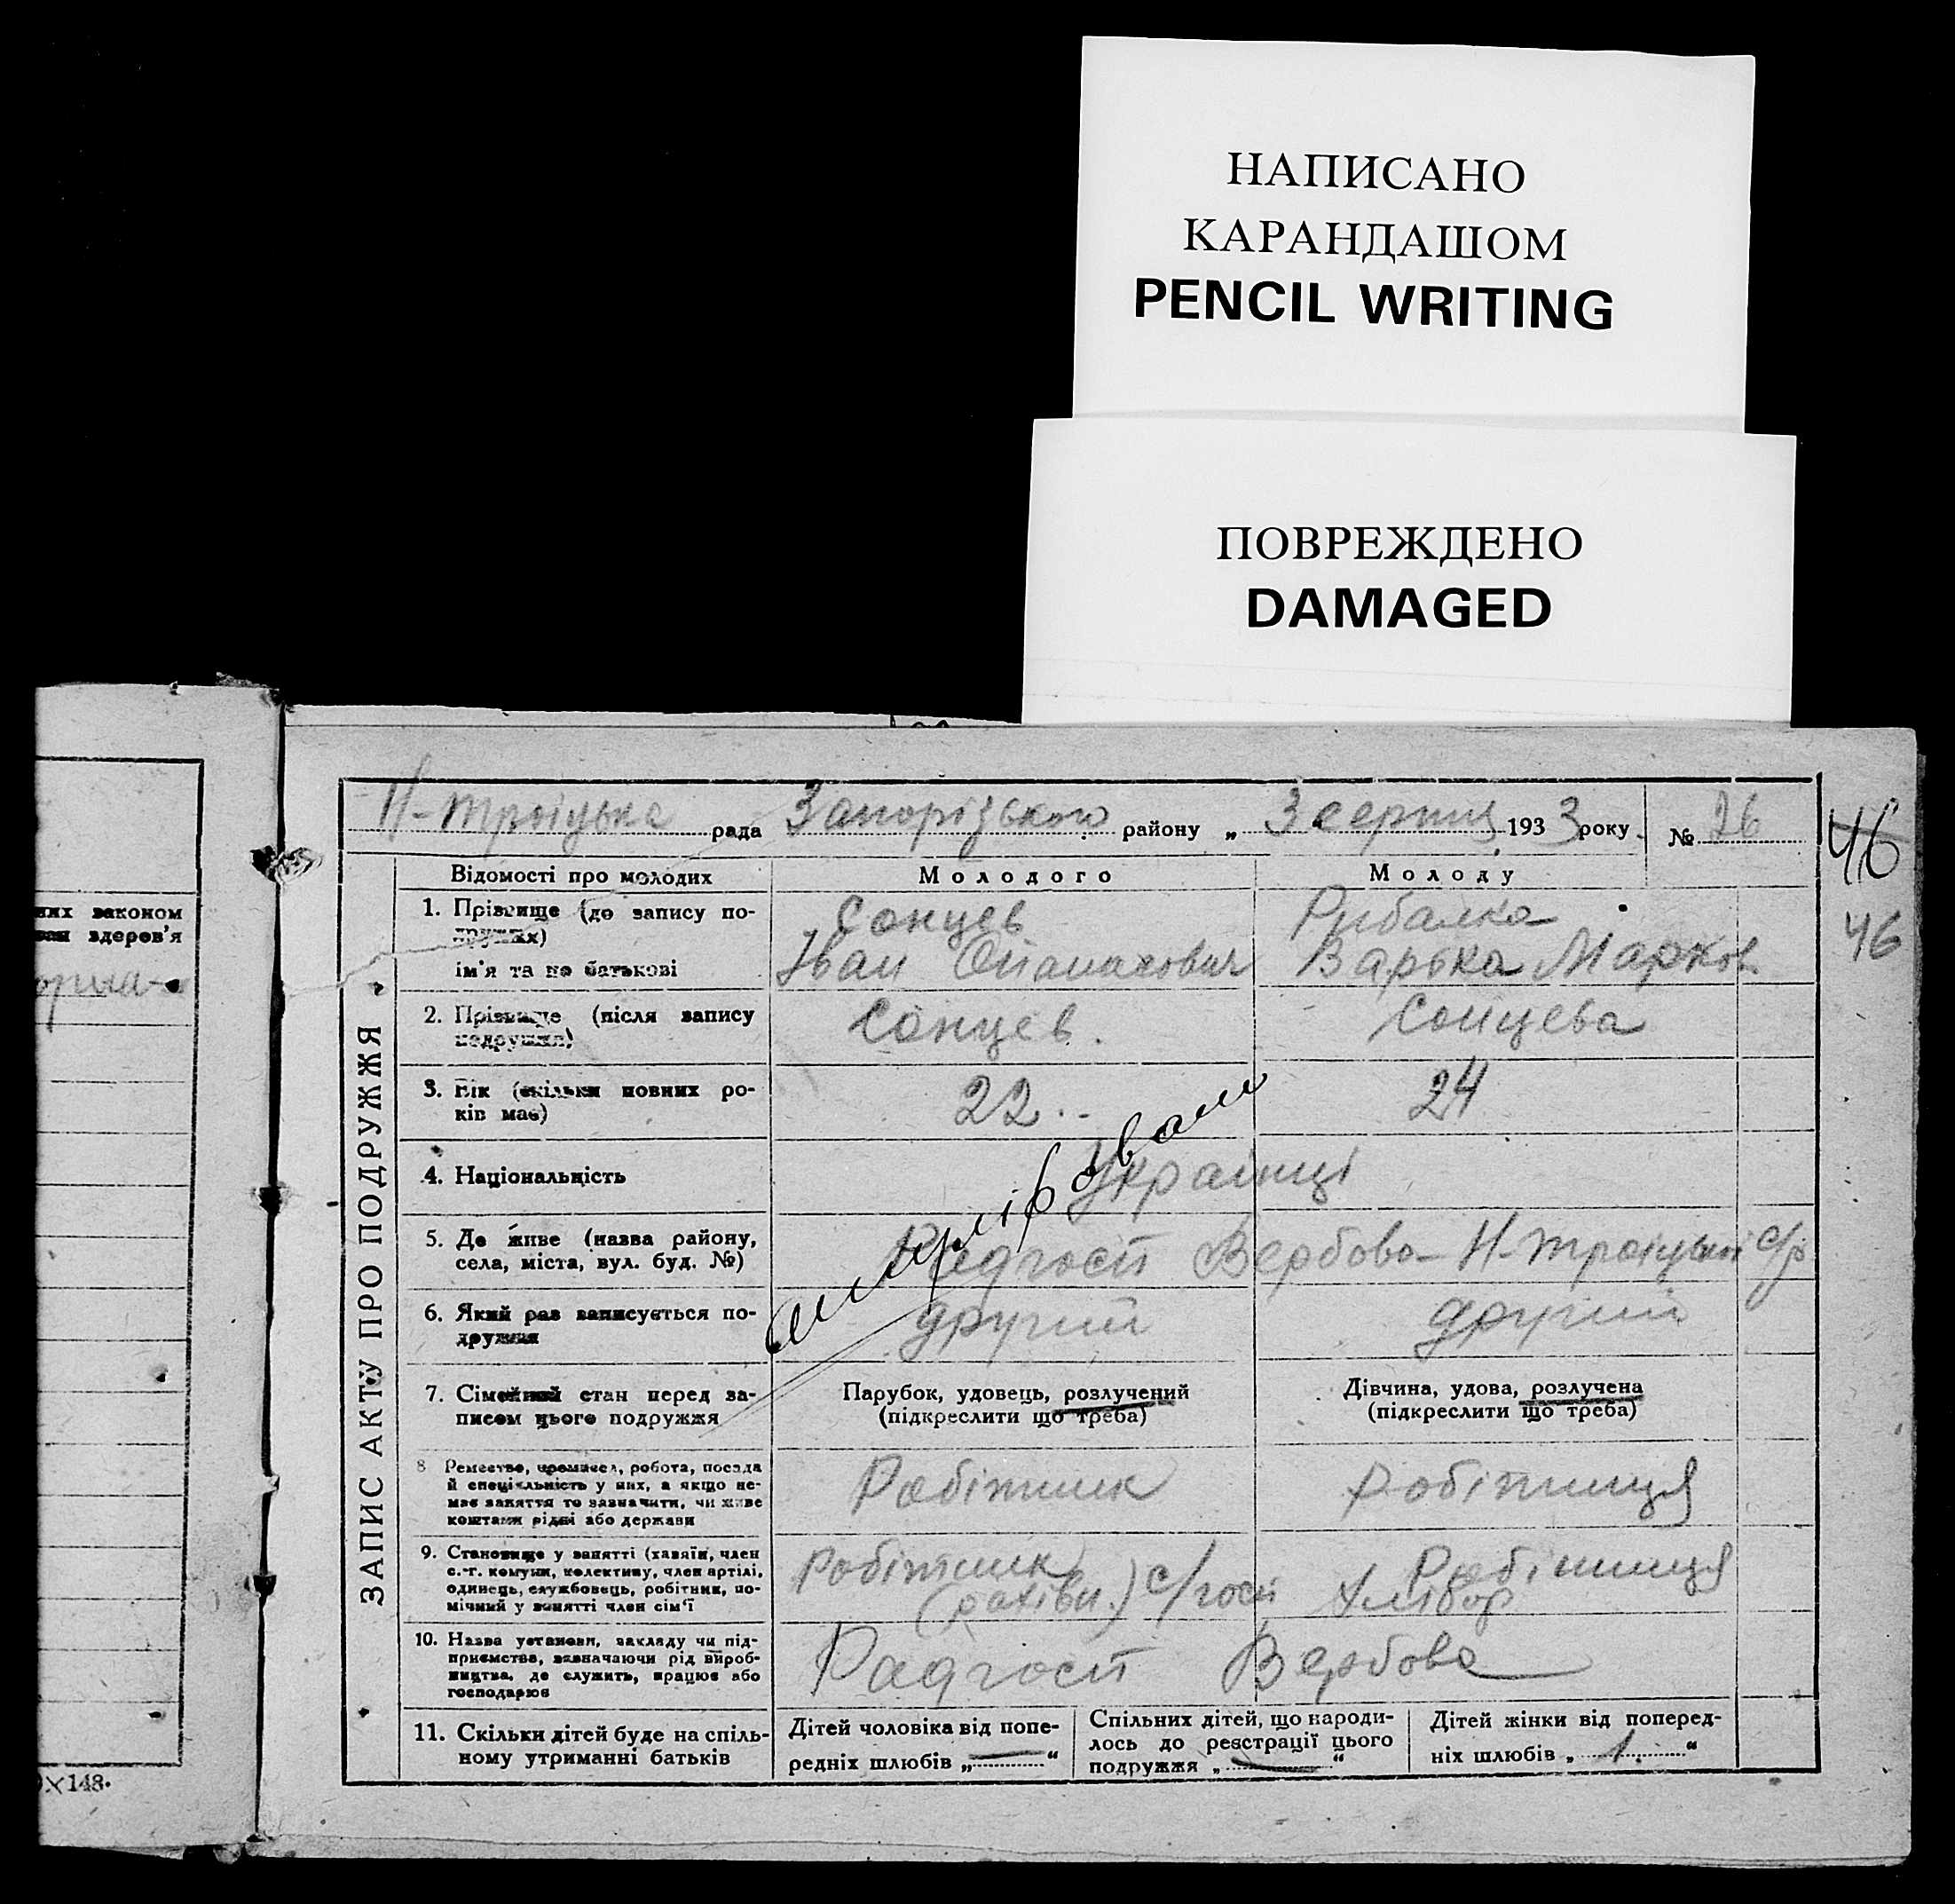 НАПИСАНО
КАРАНДАШОМ
PENCIL WRITING
ПОВРЕЖДЕНО
DAMAGED
Н-Троіцька рада Запорізького району „ 3 серпня 1933 року. № 26
46
46
них законом
здоров'я
×148·
ЗАПИС АКТУ ПРО ПОДРУЖЖЯ
Відомості про молодих Молодого Молоду
1. Прізвище (до запису по-
дружжя)
ім'я та по батькові
Сонцев
Іван Опанасович
Рибалка
Варька Марков
2. Прізвище (після запису
подружжя)
Сонцев.
Сонцева
3. Вік (скільки повних ро-
ків має)
22
24
4. Національність
Українці
5. Де живе (назва району,
села, міста, вул. буд. №)
Радгосп Вербово- Н-Троіцької с/р
6. Який раз записується по-
дружжя
другий
другий
7. Сімейний стан перед за-
писом цього подружжя
Парубок, удовець, розлучений
(підкреслити що треба)
Дівчина, удова, розлучена
(підкреслити що треба)
8 Ремество, промисел, робота, посада
й спеціяльність у них, а якщо не-
має заняття то зазначити, чи живе
коштами рідні або держави
Робітник
Робітниця
9. Становище у занятті (хазяїн, член
с.-г. комуни, колективу, член артілі,
одинець, службовець, робітник, по-
мічний у занятті член сім'ї
Робітник
с/госп
Робітниця
Хлібор
10. Назва установи, закладу чи під-
приємства, зазначаючи рід вироб-
ництва, де служить, працює або
господарює
Радгосп Вербово
11. Скільки дітей буде на спіль-
ному утриманні батьків
Дітей чоловіка від попе-
редніх шлюбів „ — “
Спільних дітей, що народи-
лось до реєстрації цього
подружжя „ — “
Дітей жінки від поперед-
ніх шлюбів „ 1. “